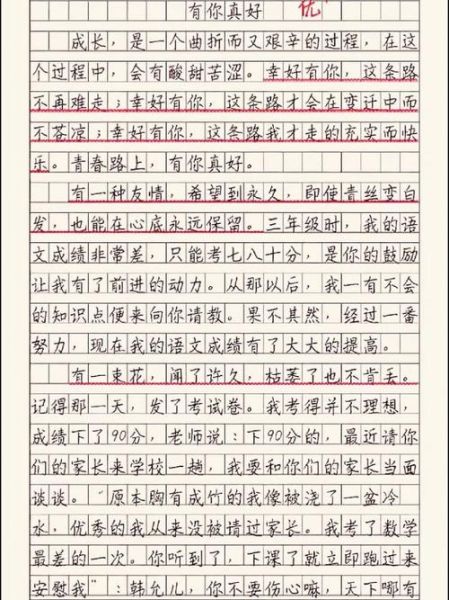 有你真好 优
成长，是一个曲折而又艰辛的过程，在这
个过程中，会有酸甜苦涩。幸好有你，这条路
不再难走；幸好有你，这条路才会在变迁中而
不苍凉；幸好有你，这条路我才走的充实而快
乐。青春路上，有你真好。
有一种友情，希望到永久，即使青丝变白
发，也能在心底永远保留。三年级时，我的语
文成绩非常差，只能考七八十分，是你的鼓励
让我有了前进的动力。从那以后，我一有不会
的知识点便来向你请教。果不其然，经过一番
努力，现在我的语文成绩有了大大的提高。
有一束花，闻了许久，枯萎了也不肯丢。
记得那一天，发了考试卷。我考得并不理想，
成绩下了90分，老师说：下90分的，最近请你
们的家长来学校一趟，我要和你们的家长当面
谈谈。“原本胸有成竹的我像被浇了一盆冷
水，优秀的我从来没被请过家长。我考了数学
最差的一次。你听到了，下课了就立即跑过来
安慰我”：韩允儿，你不要伤心嘛，天下哪有